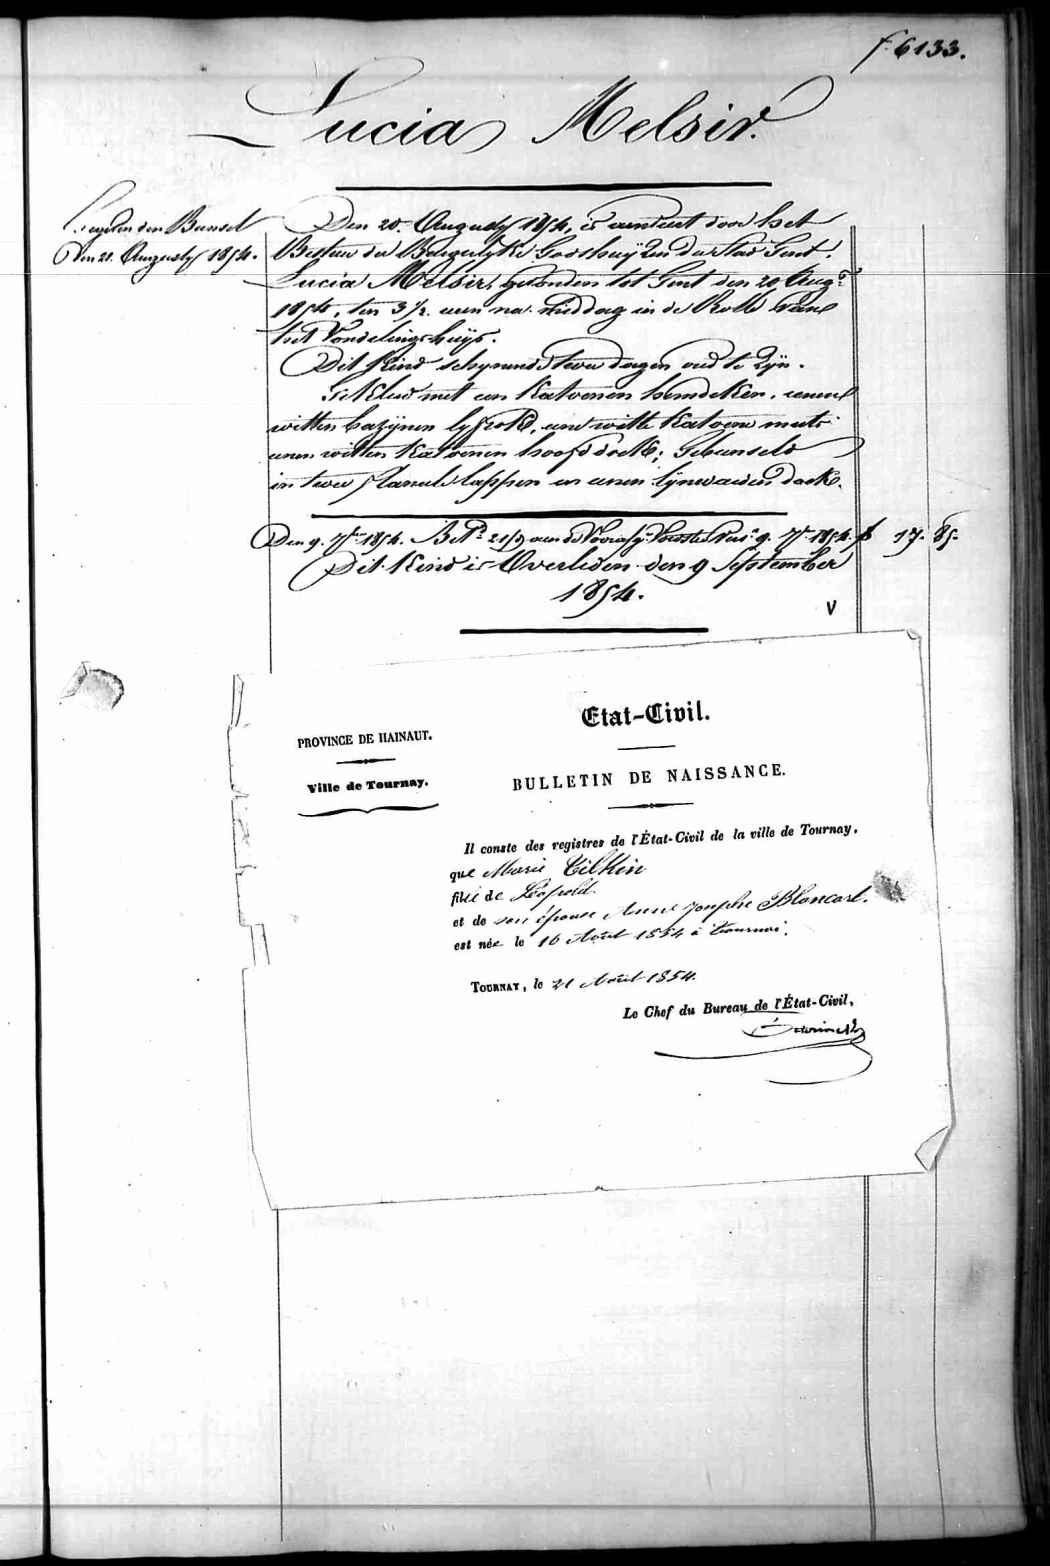 f. 6133.
Lucia Melsir.
den Bundel
Den 21. Augusty 1854.
Den 20. Augusty 1854, is aenveert door het
Bestuer der Burgerlyke Godshuyzen der Stad Gent.
Lucia Melsir, gevonden tot Gent den 20 Aug.
1854, ten 3 1/2 uren na middag in de Rolle van
het Vondelingshuys.
Dit Kind schynende twee dagen oud te zyn.
Gekleed met een katoenen hemdeken, eenen
witten bazynen lyfrok, eene witte katoene muts
eenen witten katoenen hoofddoek; Gebunseld
in twee flanelle lappen en eenen lynwaeden doek.
Den 9. 7.br 1854. 9. 7.br 1854. f 17. 85.
Dit Kind is Overleden den 9 September
1854.
V
Etat-Civil.
PROVINCE DE HAINAUT.
Ville de Tournay.
BULLETIN DE NAISSANCE.
Il conste des registres de l'État-Civil de la ville de Tournay,
que Marie Tilkin
fille de Léopold
et de son épouse Anne Josephe Blancart.
est née le 16 Août 1854 à Tournai.
TOURNAY, le 21 Août 1854.
Le Chef du Bureau de l'État-Civil,